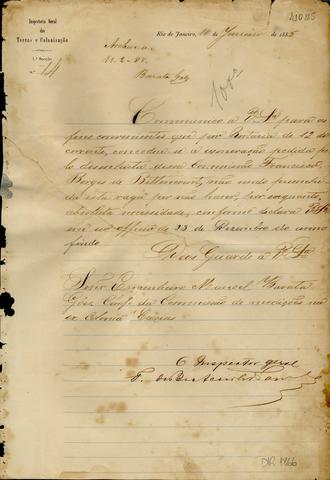 Inspectoria Geral
das
Terras e Colonisação
1.ª Secção
N. 14
410115
Rio de Janeiro, 16 de Janeiro de 1885
Archive-se
11.2.85.
Barata Góes
Communico a V. Sa para os
fins convenientes que por Portaria de 12 do
corrente, concedeu-se a exoneração pedida pe
lo desenhista dessa Commissão Francisco
Borges de Bittencourt, não sendo preenchi
da esta vaga por não haver, por emquanto,
absoluta necessidade, conforme declara V. Sa
em seo officio de 23 de Dezembro do anno
findo.
Deos Guarde a V. Sa
Senr Engenheiro Manoel Barata
Góes Chefe da Commissão de medições na
ex Colonia Caxias
O Inspector geral
DIR 1866